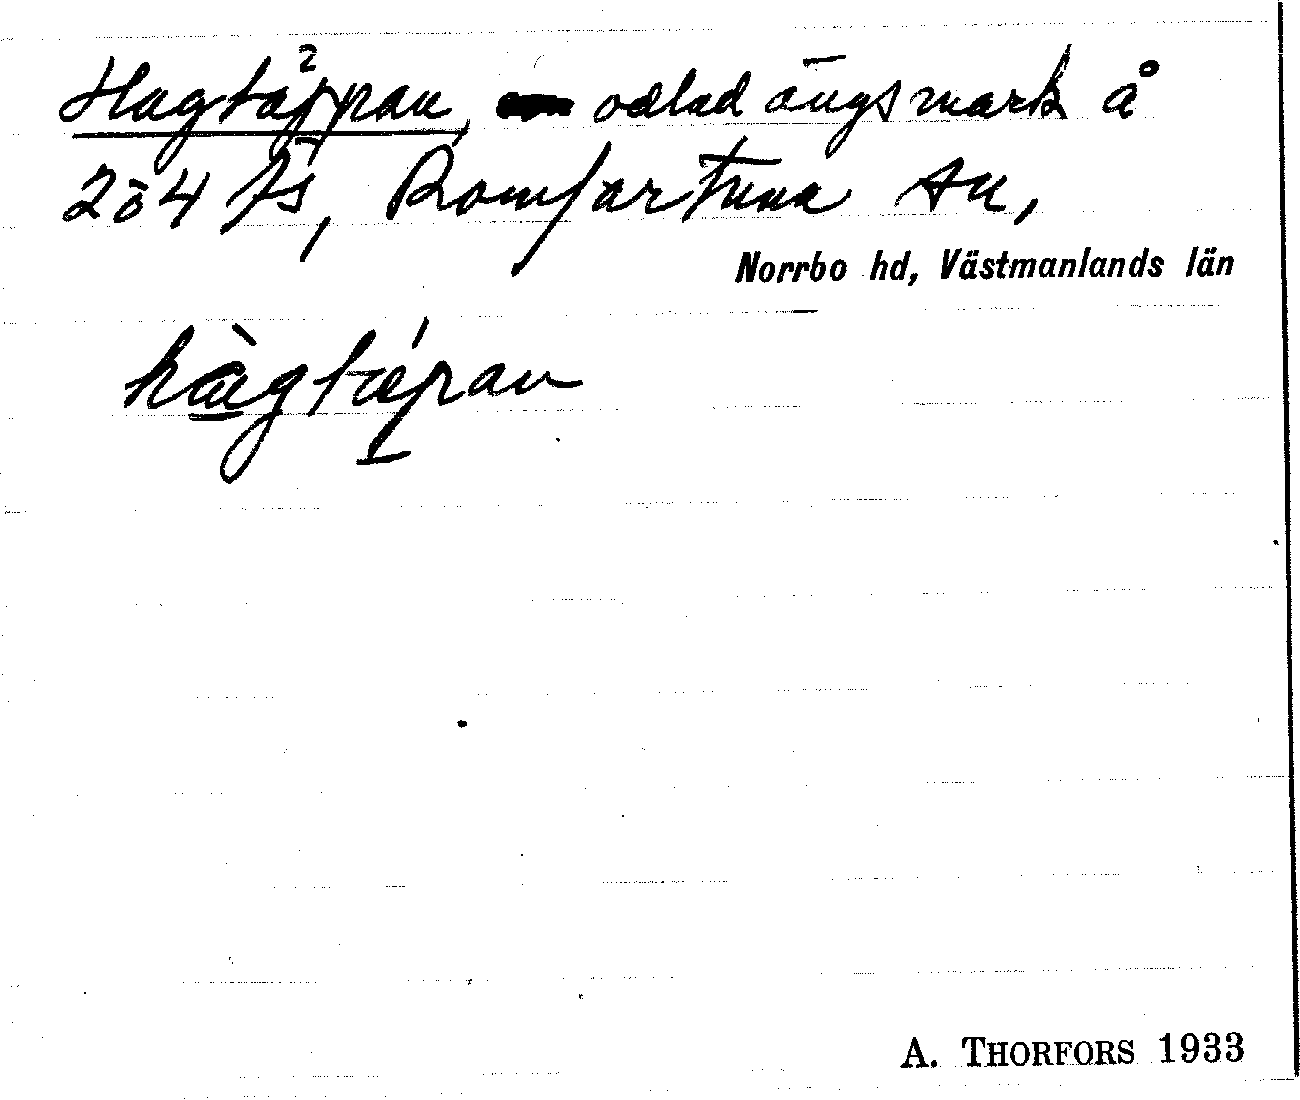 Hagtäppan, odlad ängsmark å
2 o 4 Js, Romfartuna sn,
Norrbo hd, Västmanlands län
hàgtǽpan
A. THORFORS 1933